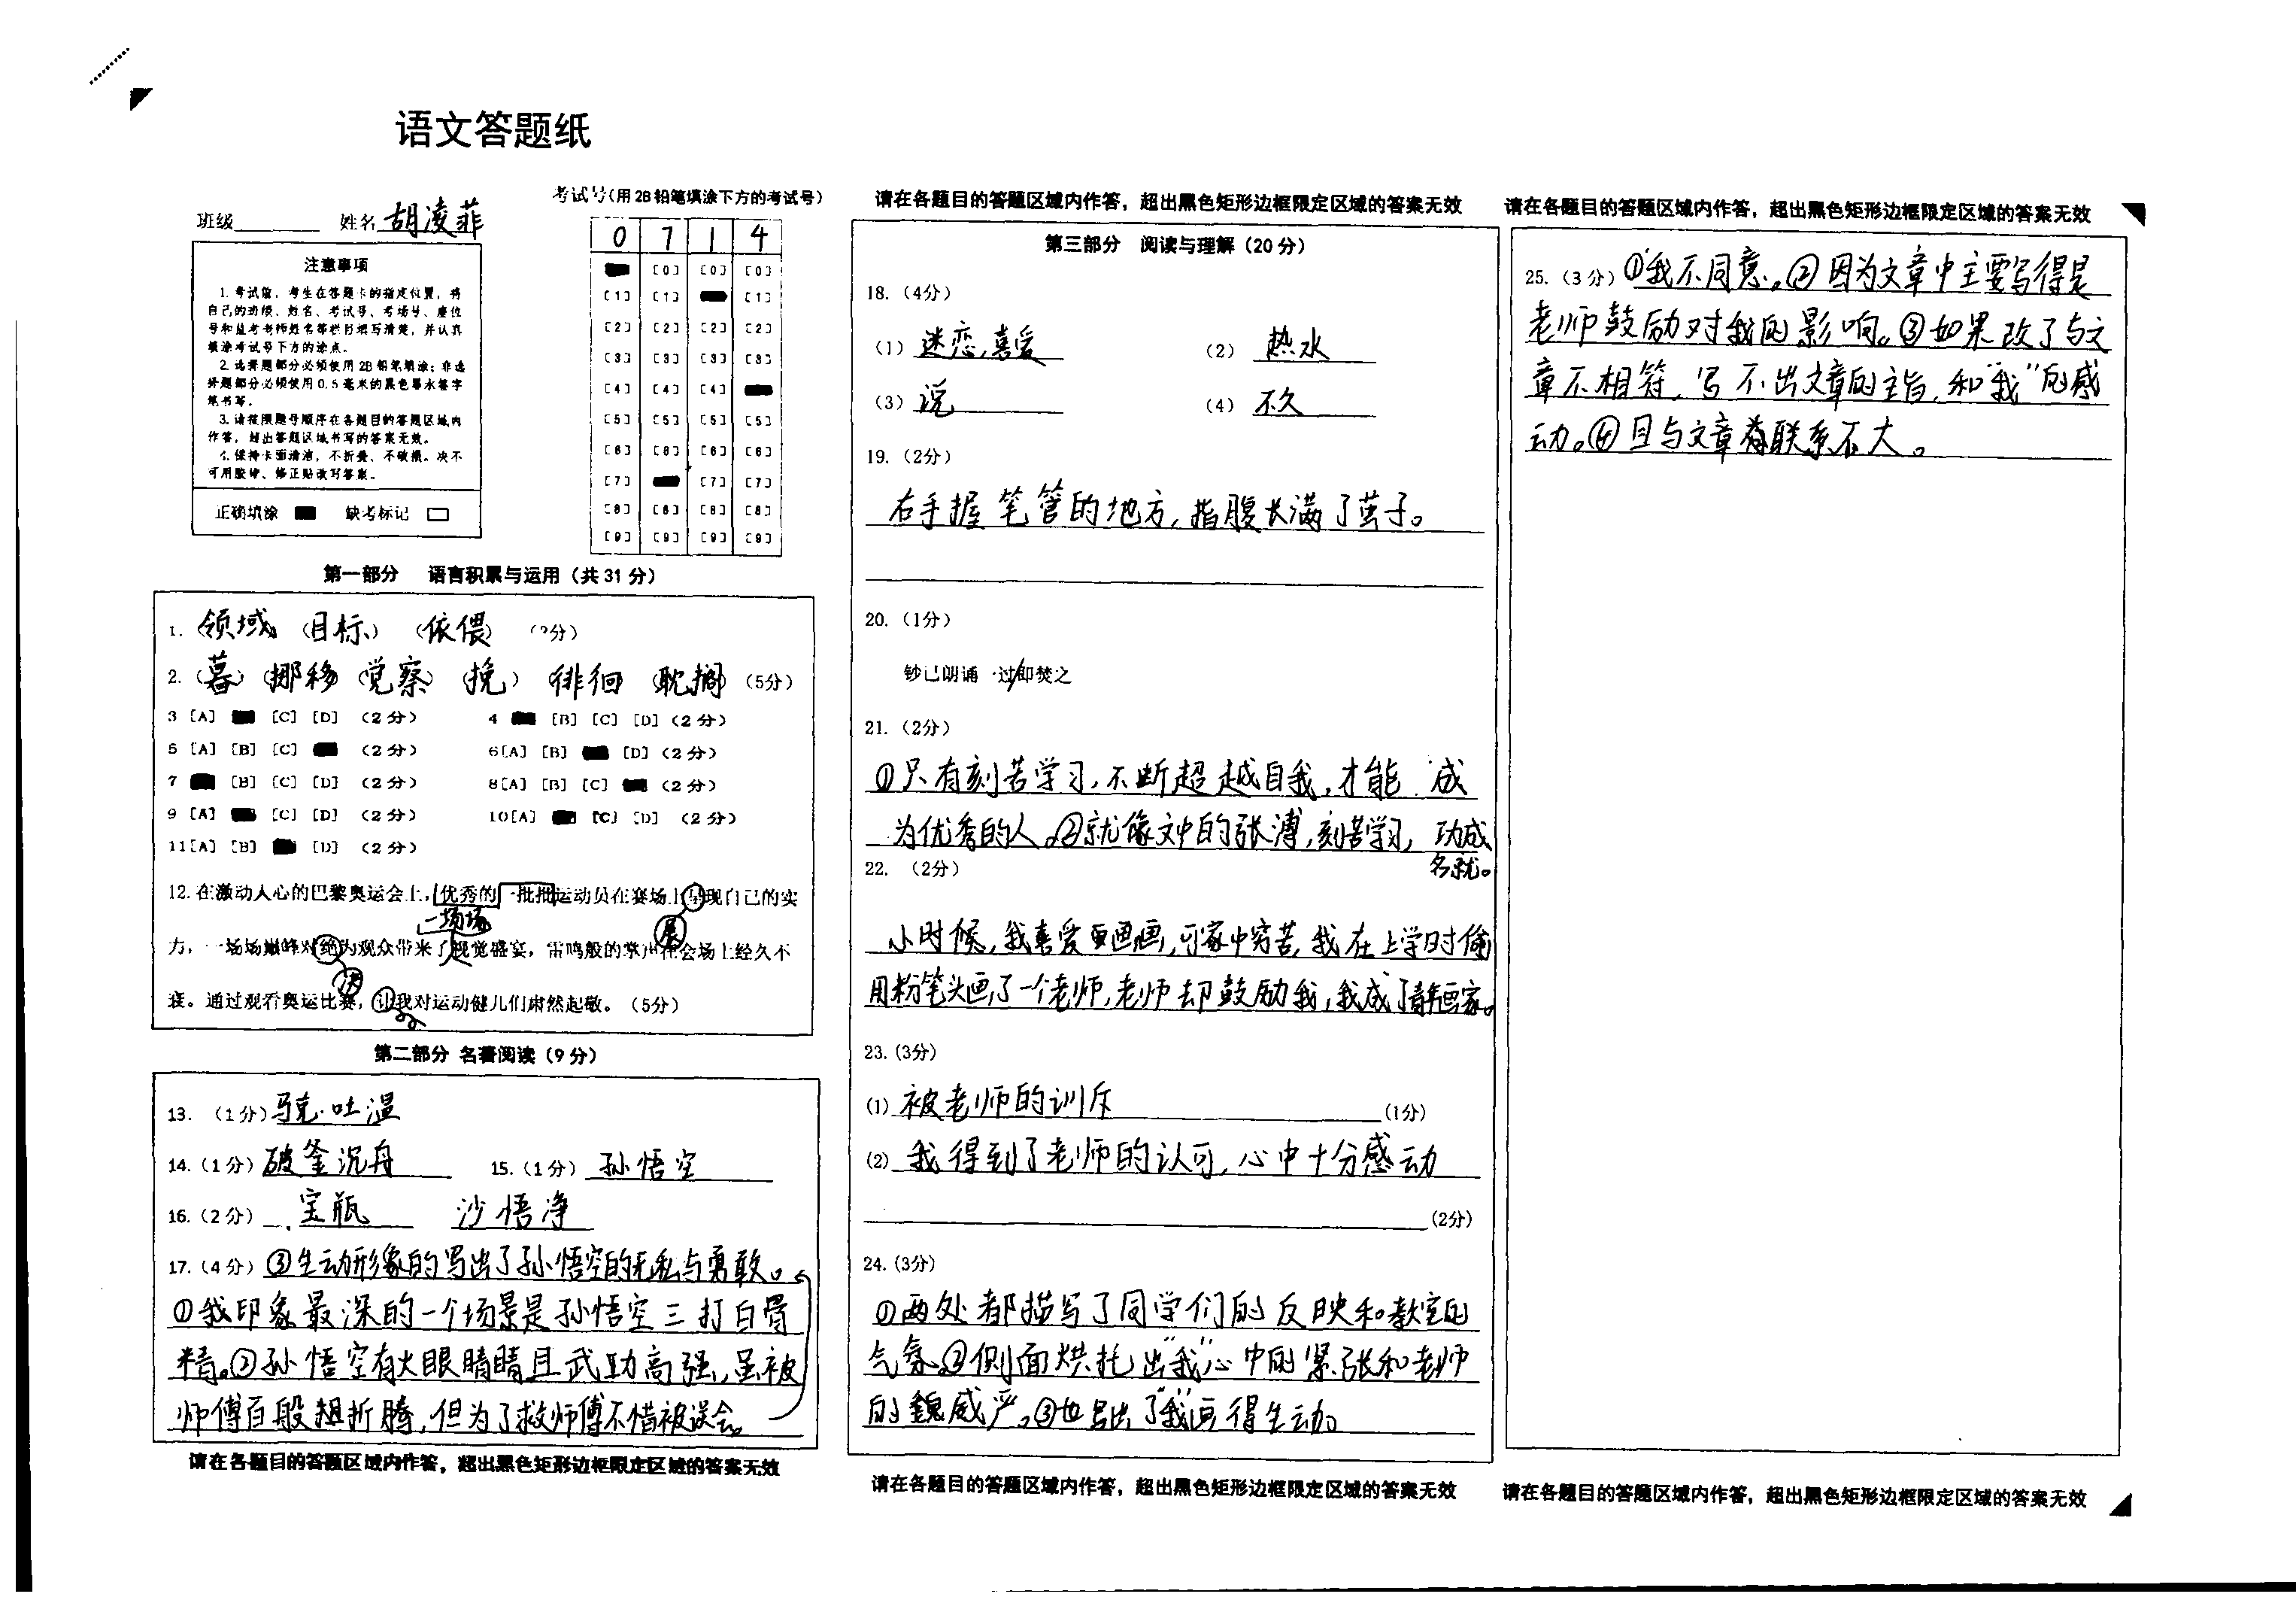 语文答题纸
班级 姓名 胡凌菲
考试号(用2B铅笔填涂下方的考试号)
0 7 1 4
[0] [0] [0]
[1] [1] [1]
[2] [2] [2] [2]
[3] [3] [3] [3]
[4] [4] [4]
[5] [5] [5] [5]
[6] [6] [6] [6]
[7] [7] [7]
[8] [8] [8] [8]
[9] [9] [9] [9]
注意事项
1. 考试前,考生在答题卡的指定位置,将
自己的班级、姓名、考试号、考场号、座位
号和监考老师姓名等栏目填写清楚,并认真
填涂考试号下方的涂点。
2. 选择题部分必须使用2B铅笔填涂;非选
择题部分必须使用0.5毫米的黑色墨水签字
笔书写。
3. 请按照题号顺序在各题目的答题区域内
作答,超出答题区域书写的答案无效。
4. 保持卡面清洁,不折叠、不破损。决不
可用胶带、修正贴改写答案。
正确填涂 缺考标记
第一部分 语言积累与运用(共31分)
1. (领域) (目标) (依偎) (2分)
2. (暮) (挪移) (觉察) (挽) (徘徊) (耽搁) (5分)
3 [A] [C] [D] (2分) 4 [B] [C] [D] (2分)
5 [A] [B] [C] (2分) 6 [A] [B] [D] (2分)
7 [B] [C] [D] (2分) 8 [A] [B] [C] (2分)
9 [A] [C] [D] (2分) 10 [A] [C] [D] (2分)
11 [A] [B] [D] (2分)
12. 在激动人心的巴黎奥运会上,优秀的一批批运动员在赛场上呈现自己的实
一场场
展
力,一场场巅峰对绝为观众带来了视觉盛宴,雷鸣般的掌声在会场上经久不
决
衰。通过观看奥运比赛,让我对运动健儿们肃然起敬。(5分)
第二部分 名著阅读(9分)
13. (1分) 马克·吐温
14. (1分) 破釜沉舟 15. (1分) 孙悟空
16. (2分) 宝瓶 沙悟净
17. (4分) ③生动形象的写出了孙悟空的无私与勇敢。
①我印象最深的一个场景是孙悟空三打白骨
精。②孙悟空有火眼睛睛且武功高强,虽被
师傅百般折腾,但为了救师傅不惜被误会。
请在各题目的答题区域内作答,超出黑色矩形边框限定区域的答案无效
请在各题目的答题区域内作答,超出黑色矩形边框限定区域的答案无效
第三部分 阅读与理解(20分)
18. (4分)
(1) 迷恋,喜爱 (2) 热水
(3) 说 (4) 不久
19. (2分)
右手握笔管的地方,指腹长满了茧子。
20. (1分)
钞已朗诵一过/即焚之
21. (2分)
①只有刻苦学习,不断超越自我,才能成
为优秀的人。②就像文中的张溥,刻苦学习,功成
名就。
22. (2分)
小时候,我喜爱画画,可家中穷苦,我在上学时偷
用粉笔头画了一个老师,老师却鼓励我,我成了画家。
23. (3分)
(1) 被老师的训斥 (1分)
(2) 我得到了老师的认可,心中十分感动
(2分)
24. (3分)
①两处都描写了同学们的反映和教室的
气氛②侧面烘托出“我”心中的紧张和老师
的威严。③也写出了“我”画得生动。
请在各题目的答题区域内作答,超出黑色矩形边框限定区域的答案无效
请在各题目的答题区域内作答,超出黑色矩形边框限定区域的答案无效
25. (3分) ①我不同意。②因为文章中主要写得是
老师鼓励对我的影响。③如果改了与文
章不相符,写不出文章的主旨,和“我”的感
动。④且与文章联系不大。
请在各题目的答题区域内作答,超出黑色矩形边框限定区域的答案无效